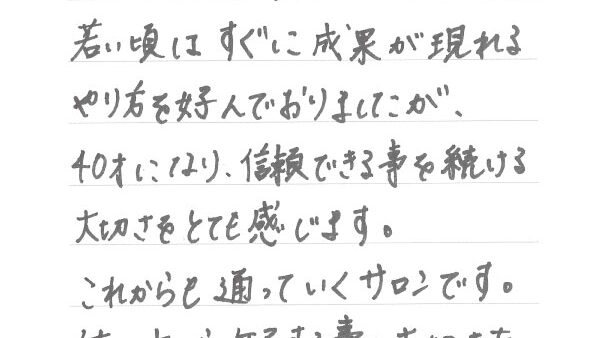 若い頃はすぐに成果が現れる
やり方を好んでおりましたが、
40才になり、信頼できる事を続ける
大切さをとても感じます。
これからも通っていくサロンです。